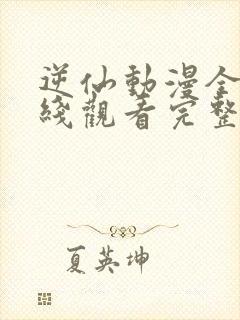 逆仙動漫全
綫觀看完整
夏英坤